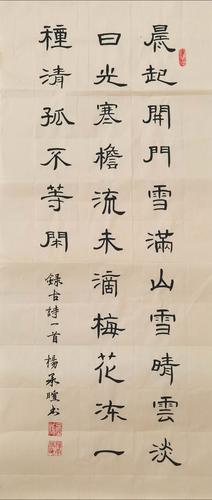 晨起開門雪滿山雪晴雲淡
日光寒檐流未滴梅花冻一
種清孤不等閑
錄古詩一首 楊承暄书